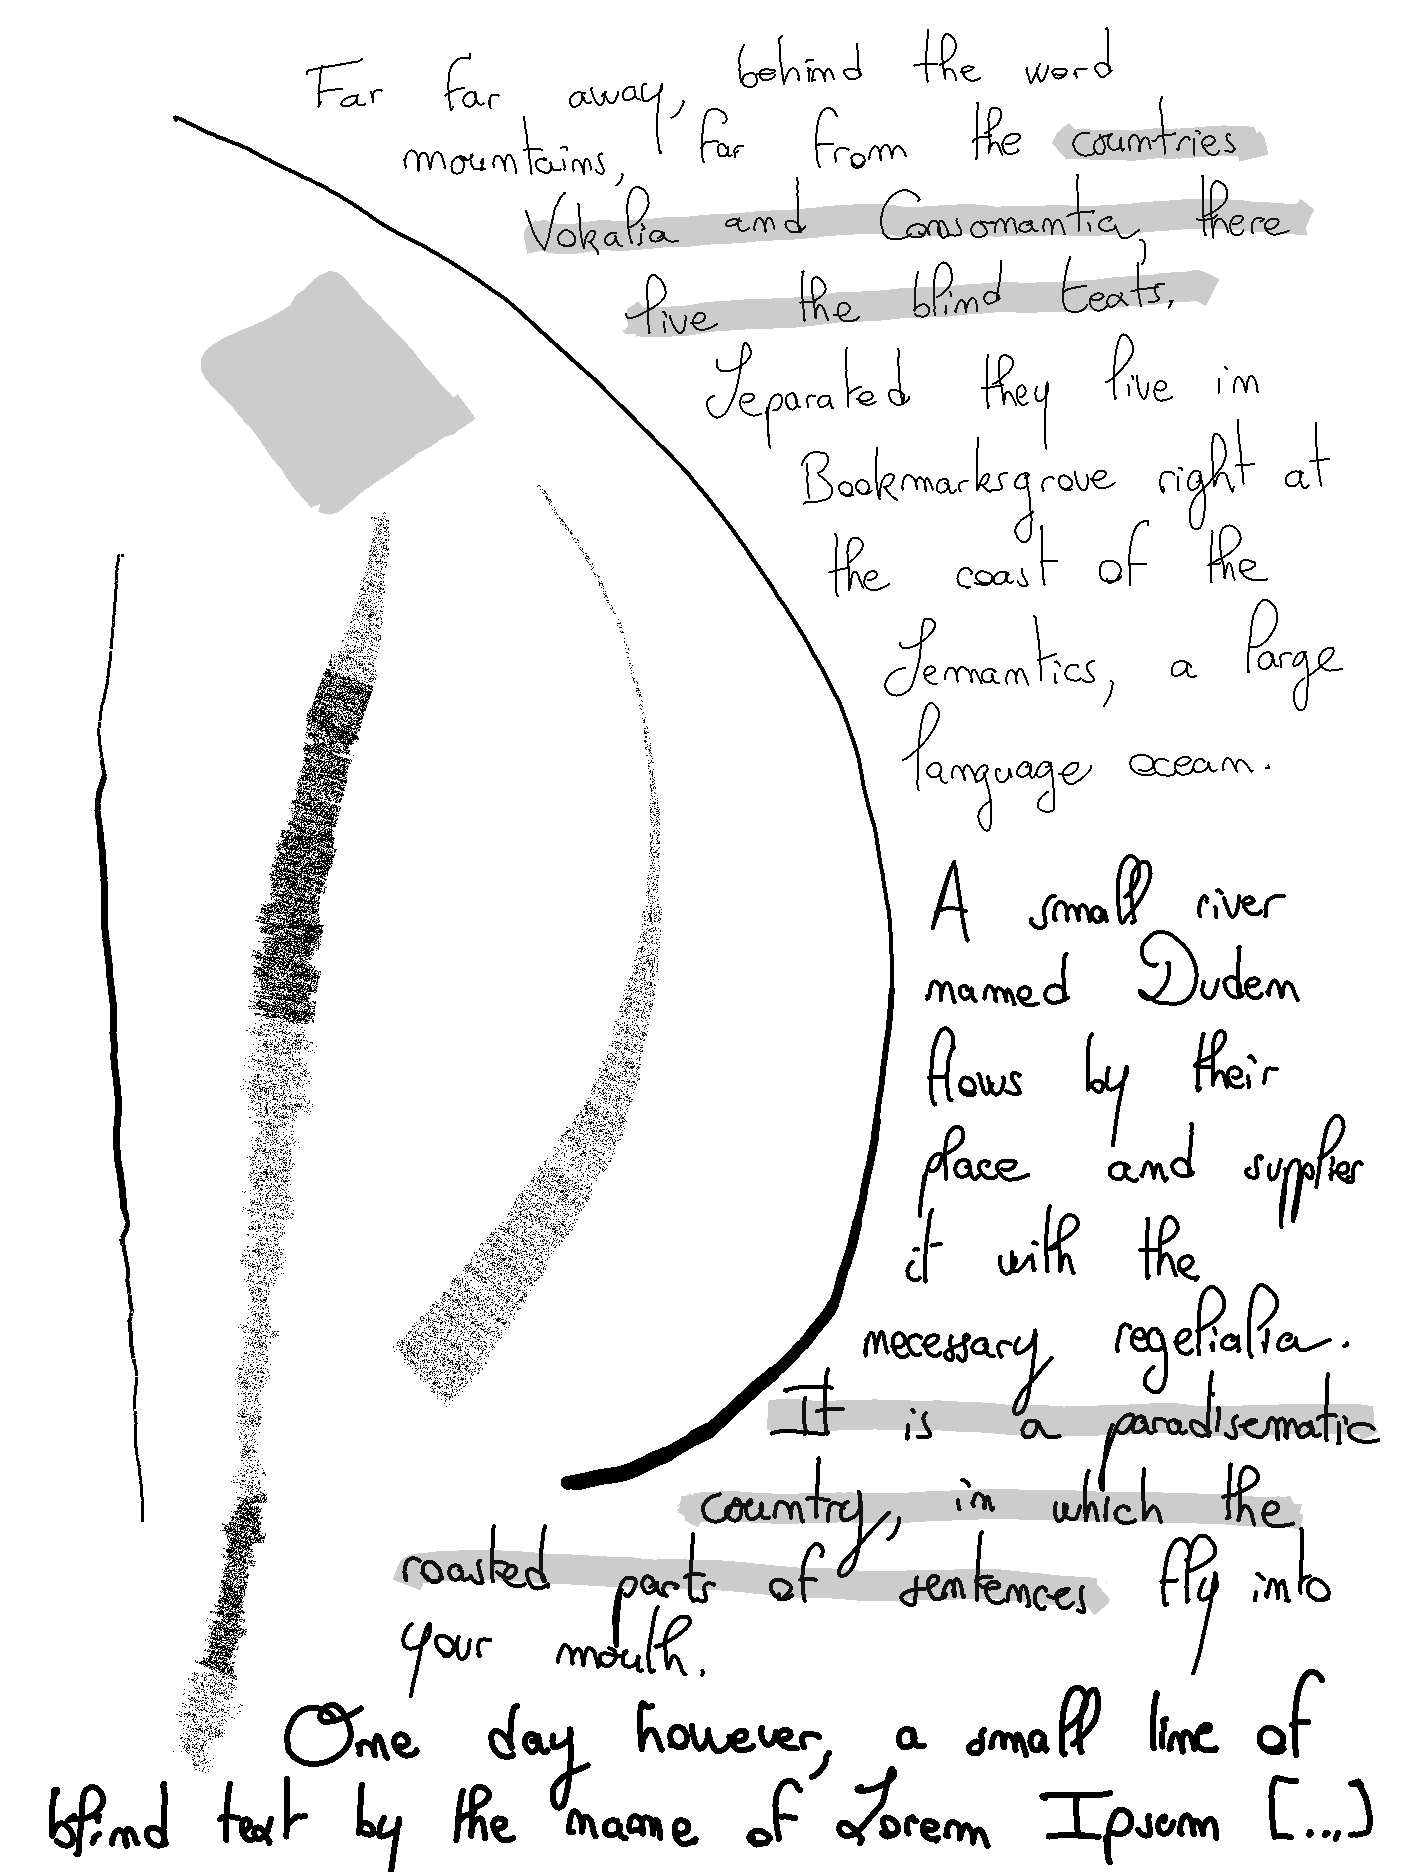 Far far away, behind the word
mountains, far from the countries
Vokalia and Consonantia, there
live the blind texts.
Separated they live in
Bookmarksgrove right at
the coast of the
Semantics, a large
language ocean.
A small river
named Duden
flows by their
place and supplies
it with the
necessary regelialia.
It is a paradisematic
country, in which the
roasted parts of sentences fly into
your mouth.
One day however, a small line of
blind text by the name of Lorem Ipsum [...]